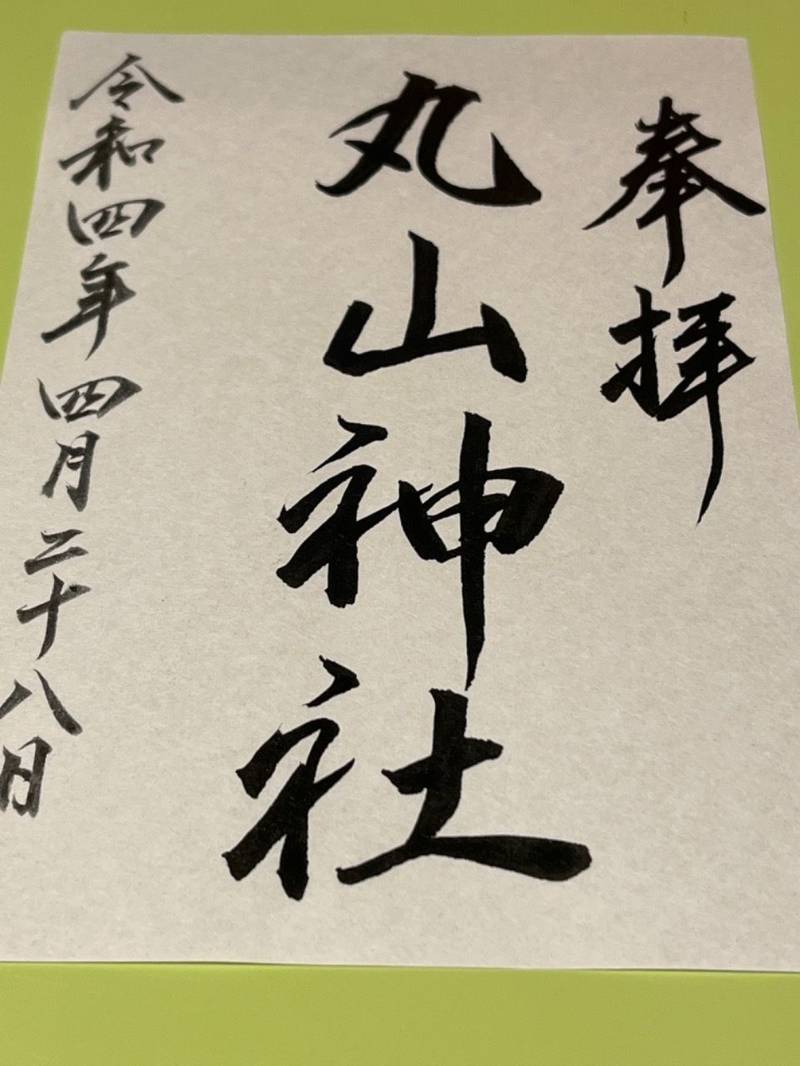 奉拝
丸山神社
令和四年四月二十八日